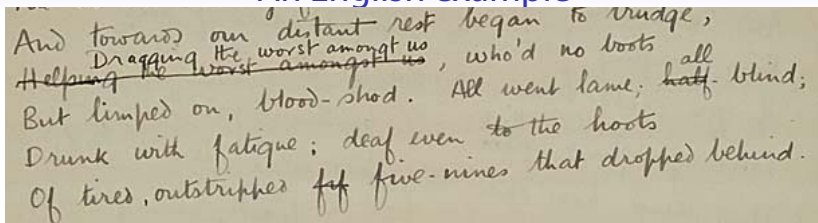 An English example
And towards our distant rest began to trudge,
Dragging the worst amongt us
Helping the worst amongst us, who'd no boots
But limped on, blood-shod. All went lame; half all blind;
Drunk with fatigue; deaf even to the hoots
Of tired, outstripped fif five-nines that dropped behind.